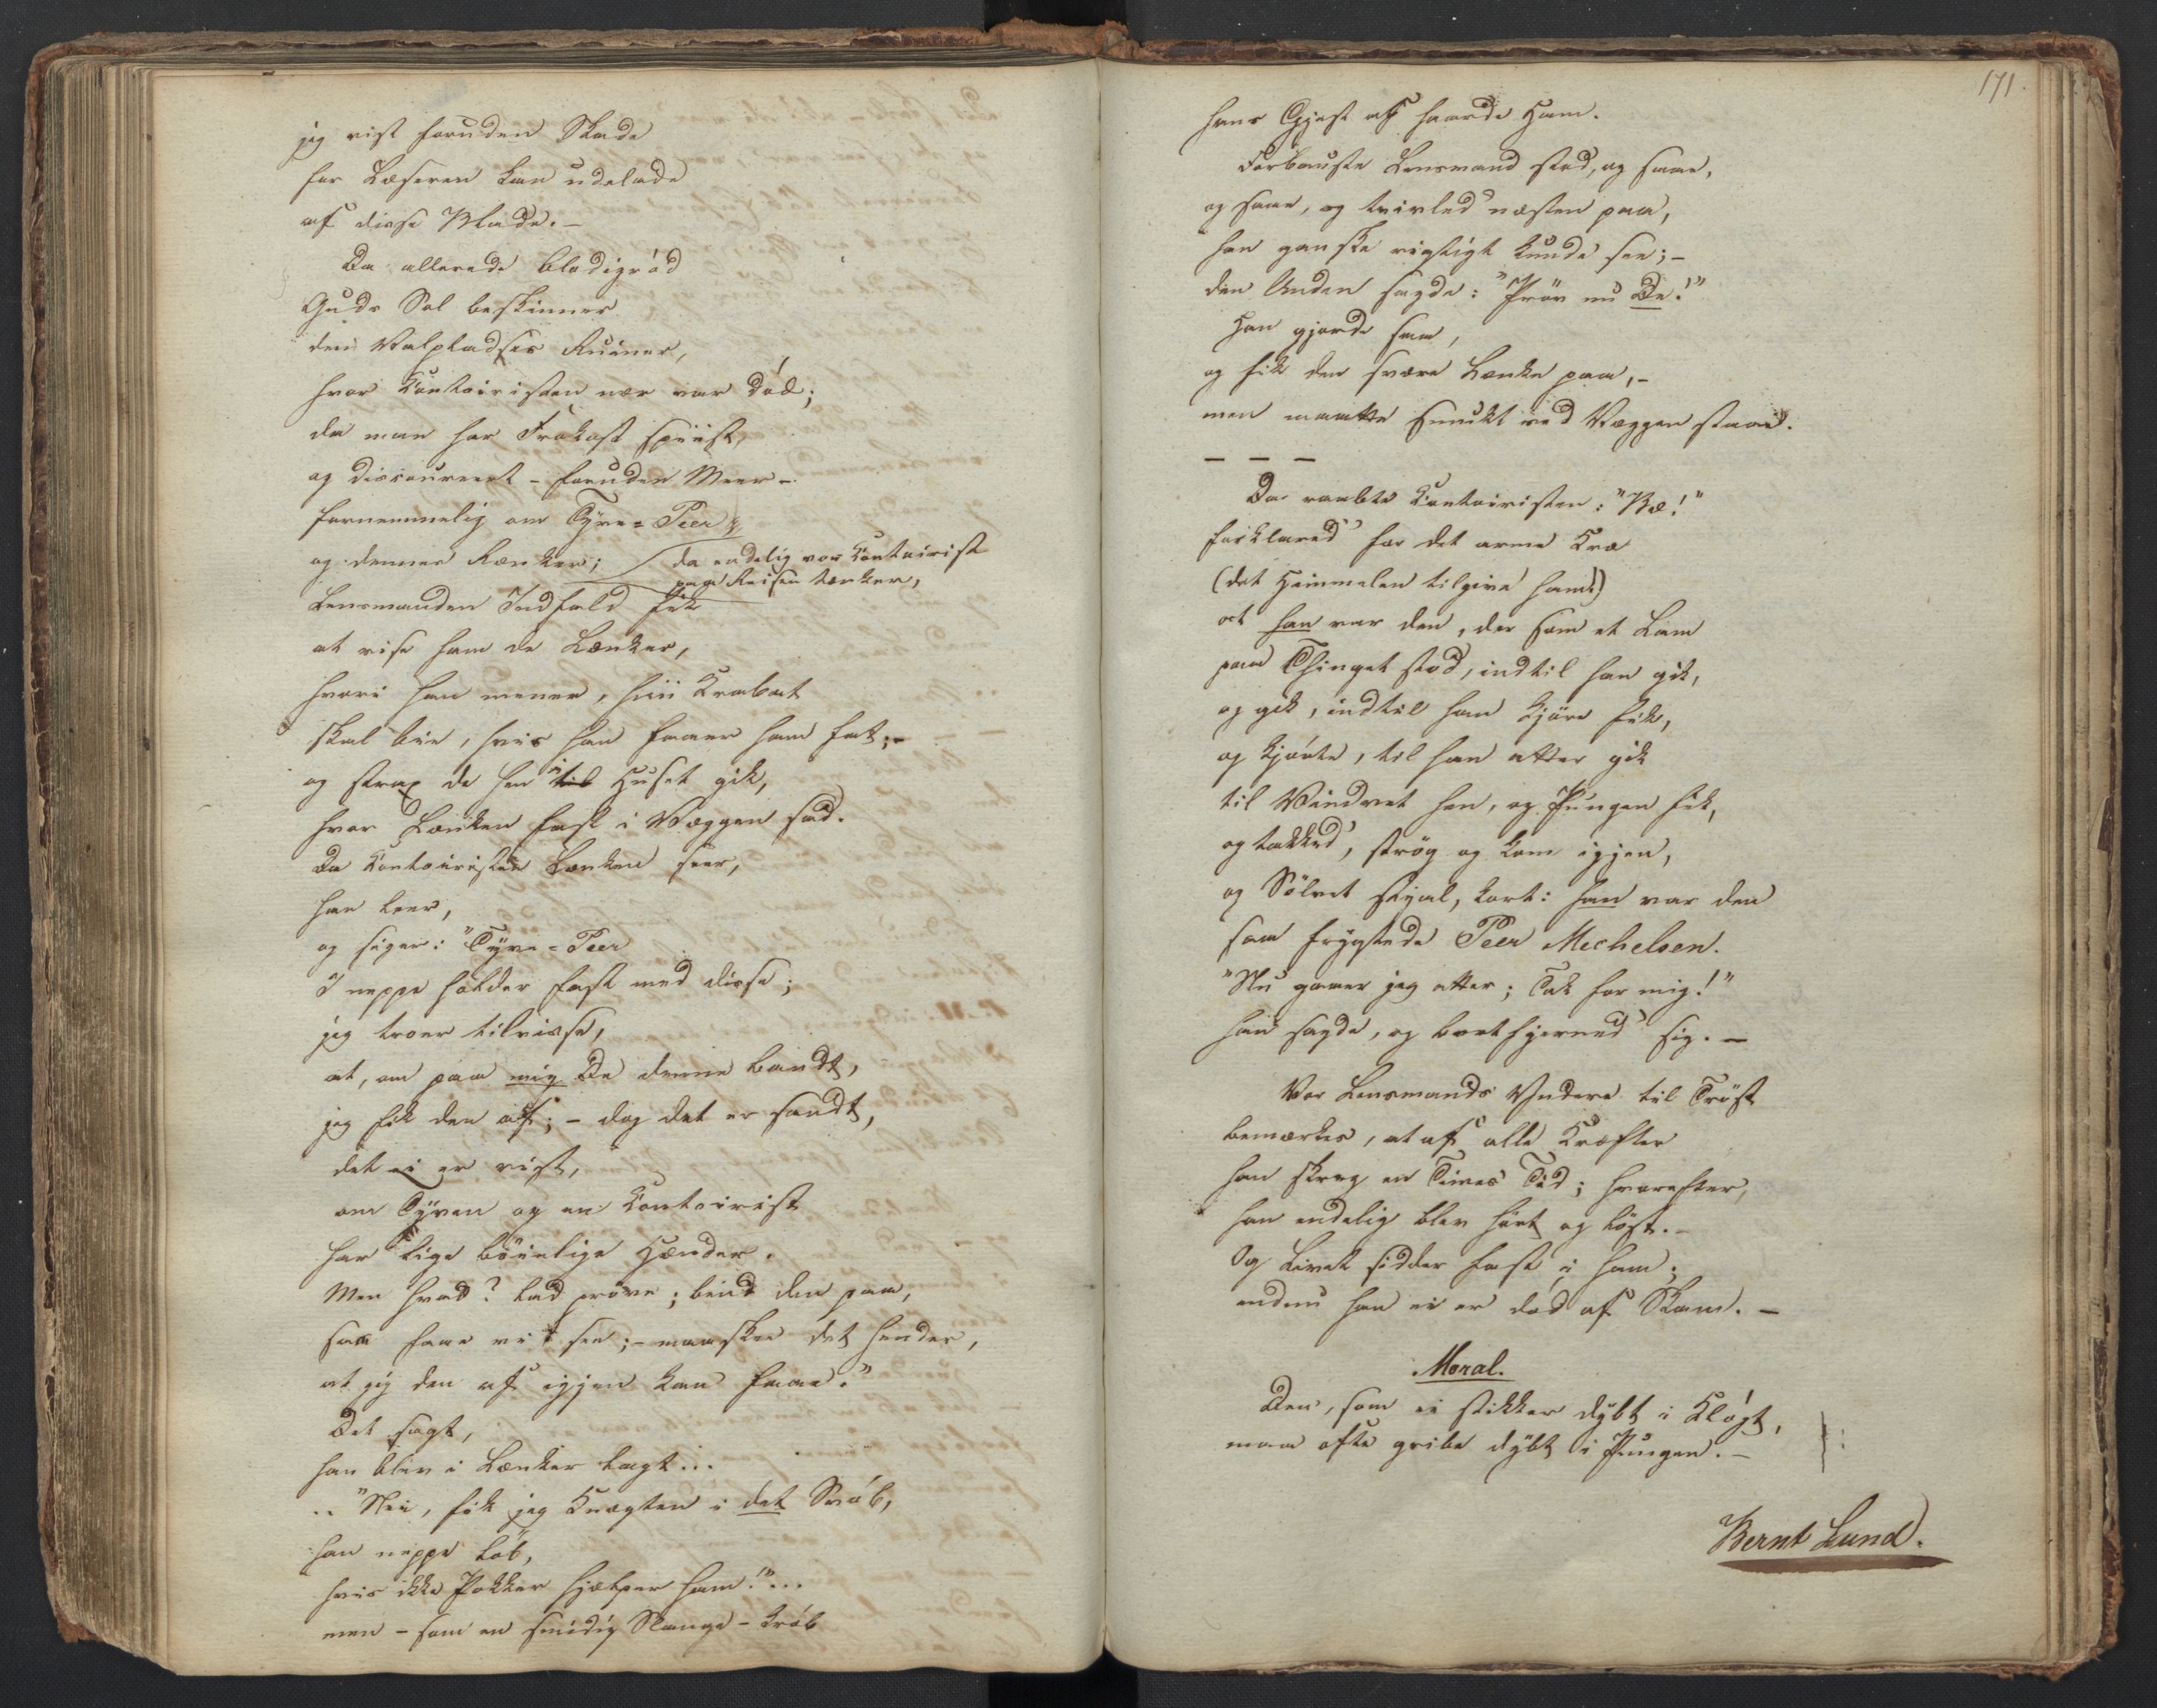 jeg vist foruden Skade
for Læseren kan udelade
af disse Blade. –
Da allerede blodigrød
Guds Sol beskinner
den Valpladses Ruiner,
hvor Contoiristen nær var død;
da man har Frokost spiist,
og discoureert – foruden Meer –
fornemmelig om Tyve=Peer
og dennes Rænker; da endelig vor Contoirist
paa Reisen tænker,
Lensmanden Indfald fik
at vise ham de Lænker,
hvori han mener, hiin Krabat
skal bie, hvis han faaer ham fat; –
og strax de hen i til Huset gik,
hvor Lænken fast i Væggen sad.
Da Contoiristen Lænken seer,
han leer,
og siger: "Tyve=Peer
I neppe holder fast med disse;
jeg troer tilvisse,
at, om paa mig De denne bandt,
jeg fik den af; – dog det er sandt,
det ei er vist,
om Tyven og en Contoirist
har lige bøielige Hænder.
Men hvad? lad prøve; bind den paa,
saa faae vi see; – maaskee det hender,
at jeg den af igjen kan faae."
Det sagt,
han blev i Lænker lagt...
.. "Nei, fik jeg Knægten i det Svøb,
han neppe løb,
hvis ikke Pokker hjælper ham!"...
men – som en smidig Slange – krøb
171.
hans Gjest af haarde Ham.
Forbauste Lensmand stod, og saae,
og saae, og tvivled' næsten paa,
han ganske rigtigt kunde see; –
den Anden sagde: "Prøv nu De!"
Han gjorde saa,
og fik den svære Lænke paa, –
men maatte smukt ved Væggen staae.
– – –
Da raabte Contoiristen: "Bæ!"
forklared' for det arme Kræ
(det Himmelen tilgive ham!)
at han var den, der som et Lam
paa Thinget stod, indtil han gik,
og gik, indtil han kjøre fik,
og kjørte, til han atter gik
til Vinduet hen, og Pungen fik,
og takked', strøg og kom igjen,
og Sølvet stjal, kort: han var den
som frygtede Peer Mechelsen.
"Nu gaaer jeg atter; Tak for mig!"
han sagde, og bortfjerned' sig. –
Vor Lensmands Yndere til Trøst
bemærkes, at af alle Kræfter
han skreg en Times Tid; hvorefter,
han endelig blev hørt og løst. –
Og Livet sidder fast i ham;
endnu han ei er død af Skam. –
Moral.
Den, som ei stikker dybt i Kløgt,
maa ofte gribe dybt i Pungen. –
Bernt Lund.